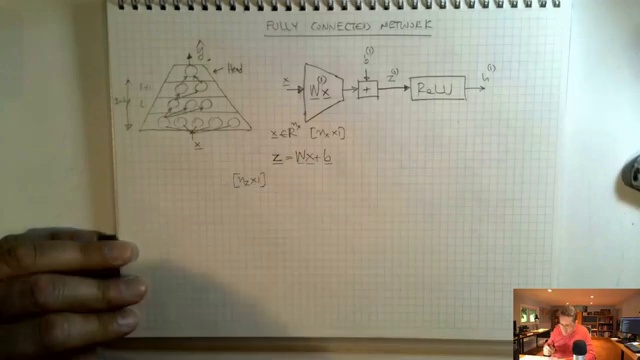 FULLY CONNECTED NETWORK
ŷ
Head
L+1
L
x
x W⁽¹⁾x b⁽¹⁾ + z⁽¹⁾ ReLU h⁽¹⁾
x ∈ R^{n_x} [n_x × 1]
z = Wx + b
[n_z × 1]